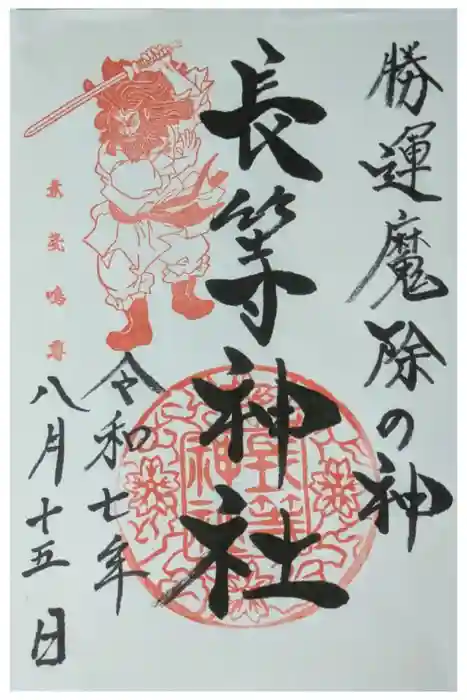 勝運魔除の神
長等神社
令和七年
八月十五日
素戔嗚尊
長等神社